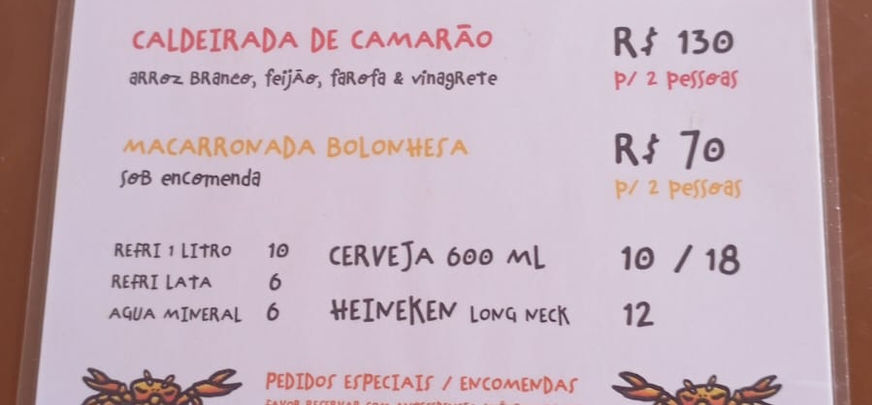 CALDEIRADA DE CAMARÃO R$ 130
aRRoz BRanco, feijão, faRofa & vinagRete p/ 2 pessoas
MACARRONADA BOLONHESA R$ 70
SOB encomenda p/ 2 pessoas
REFRI 1 LITRO 10 CERVEJA 600 ML 10 / 18
REFRI LATA 6
AGUA MINERAL 6 HEINEKEN LONG NECK 12
PEDIDOS ESPECIAIS / ENCOMENDAS